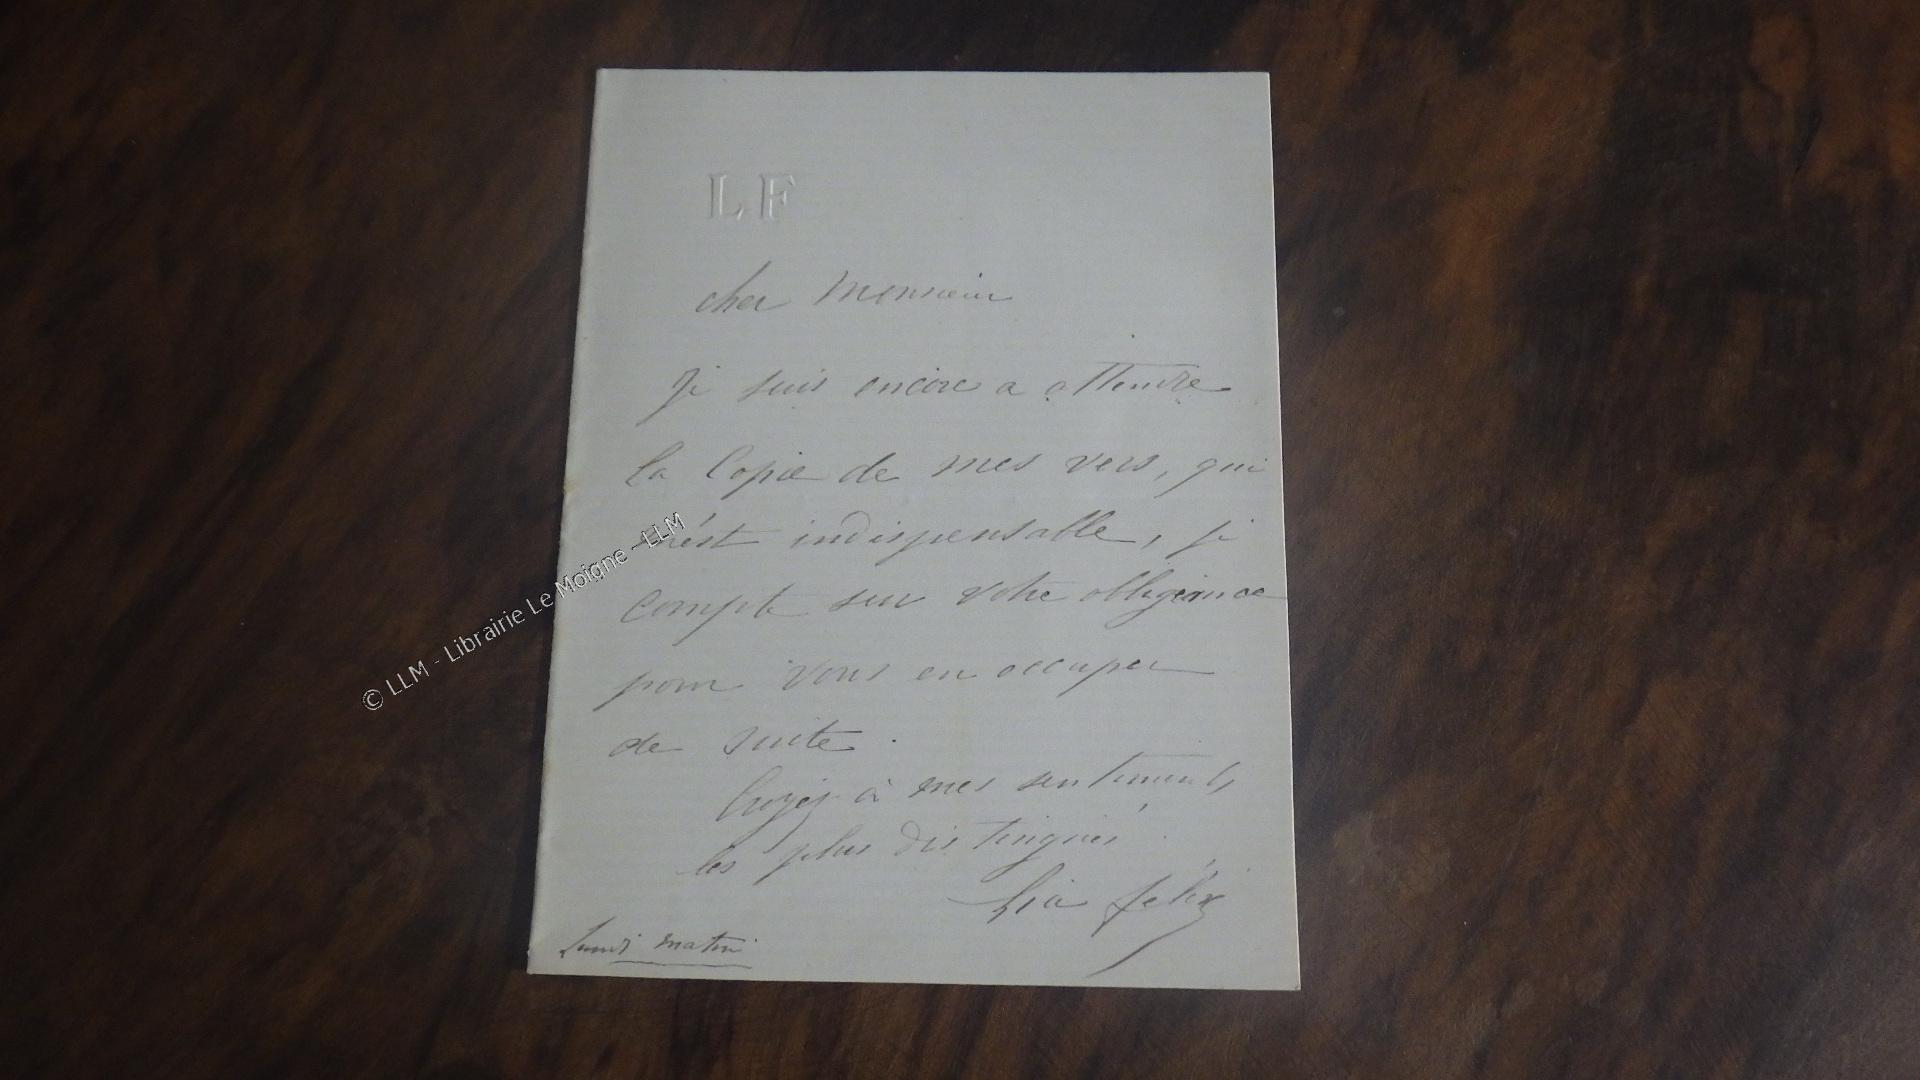 LF
cher Monsieur
Je suis encore a attendre
la Copie de mes vers, qui
m'est indispensable, je
compte sur votre obligeance
pour vous en occuper
de suite.
Croyez à mes sentiments
les plus distingués.
Lia felix
Lundi matin
© LLM - Librairie Le Moigne - LLM